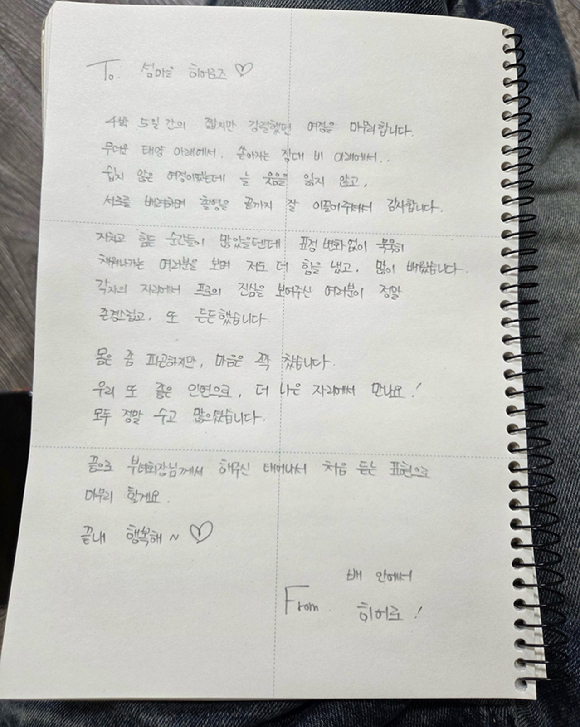 To. 섬마을 히어로즈 ♡
4박 5일간의 짧지만 강렬했던 여정을 마무리합니다.
무더운 태양 아래에서, 쏟아지는 장대 비 아래에서..
쉽지 않은 여정이었는데 늘 웃음을 잃지 않고,
서로를 배려하며 촬영을 끝까지 잘 이끌어주셔서 감사합니다.
지치고 힘든 순간들이 많았을텐데 표정 변화없이 묵묵히
채워나가는 여러분을 보며 저도 더 힘을 내고, 많이 배웠습니다.
각자의 자리에서 프로의 진심을 보여주신 여러분이 정말
존경스럽고, 또 든든했습니다
몸은 좀 피곤하지만, 마음은 꽉 찼습니다.
우리 또 좋은 인연으로, 더 나은 자리에서 만나요!
모두 정말 수고 많으셨습니다.
끝으로 부녀회장님께서 해주신 태어나서 처음 듣는 표현으로
마무리 할게요.
끝내 행복해~ ♡
배 안에서
From 히어로!